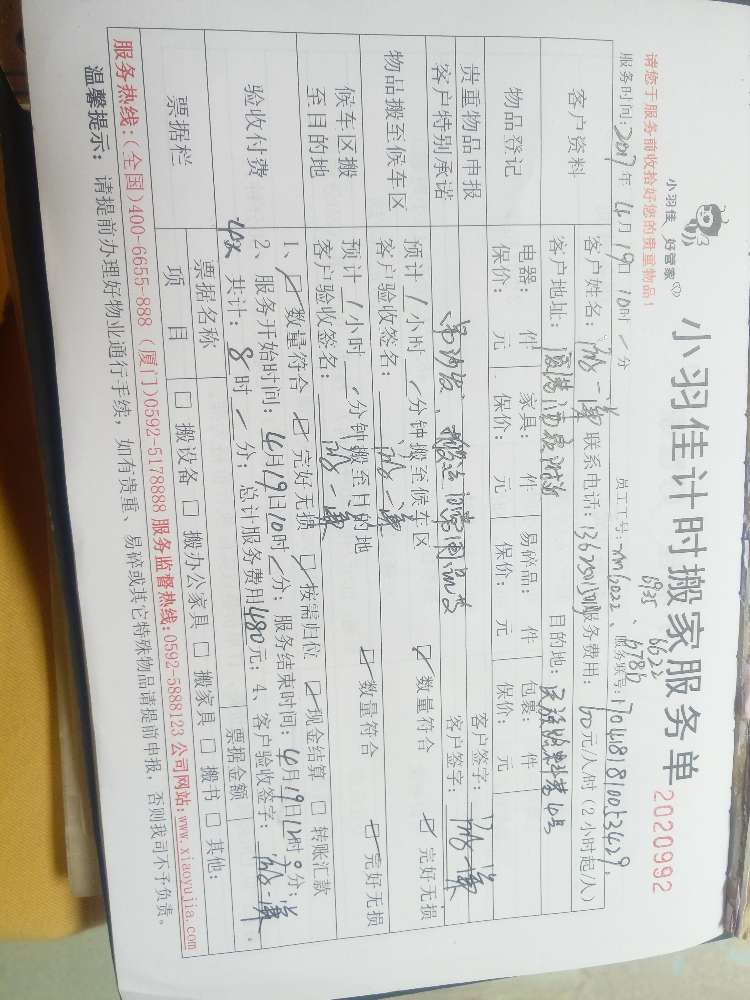 小羽佳 好管家
小羽佳计时搬家服务单 2020992
请您于服务前收拾好您的贵重物品！
员工工号: xm6022、6935、6622、6786
服务时间: 2017年 4月 19日 10时 / 分 服务账号: 1704181810053429
客户资料
客户姓名: 联系电话: 服务费用: 60元/人/时 (2小时起/人)
客户地址: 目的地:
物品登记
电器: 件 家具: 件 易碎品: 件 包裹: 件
保价: 元 保价: 元 保价: 元 保价: 元
贵重物品申报 客户签字:
客户特别承诺 客户签字:
物品搬至候车区
预计 1小时 / 分钟搬至候车区 ☑ 数量符合 ☑ 完好无损
客户验收签名:
候车区搬至目的地
预计 1小时 / 分钟搬至目的地 ☑ 数量符合 ☑ 完好无损
客户验收签名:
验收付费
1、☑ 数量符合 ☑ 完好无损 ☑ 按需归位 ☑ 现金结算 □ 转账汇款
2、服务开始时间: 4月19日10时 / 分; 服务结束时间: 4月19日12时0分;
共计: 8时 / 分; 总计服务费用480元; 4、客户验收签字:
票据栏
票据名称 票据金额
项目 □ 搬设备 □ 搬办公家具 □ 搬家具 □ 搬书 □ 其他:
服务热线: (全国)400-6655-888 (厦门)0592-5178888 服务监督热线:0592-5888123 公司网站:www.xiaoyujia.com
温馨提示: 请提前办理好物业通行手续, 如有贵重、易碎或其它特殊物品请提前申报, 否则我司不予负责。